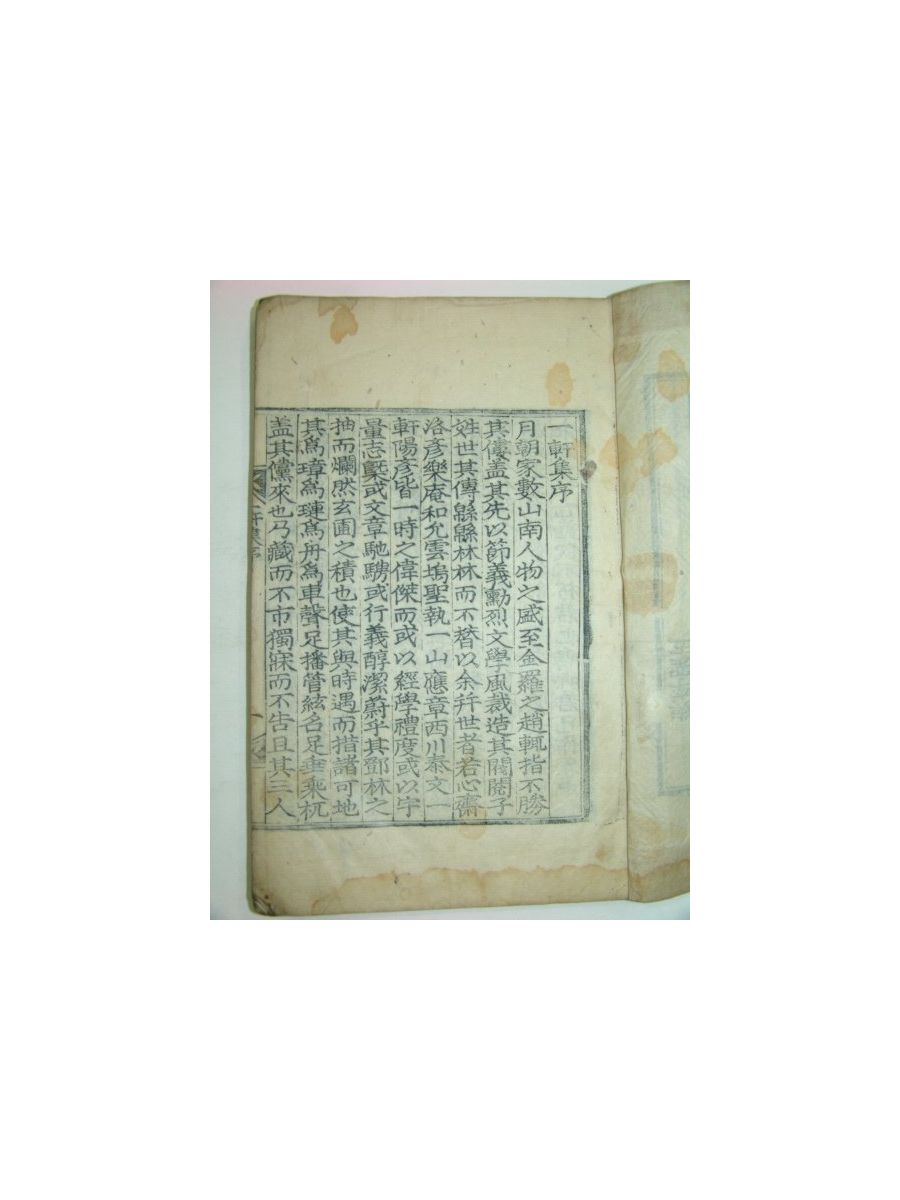 一軒集序
月朝家數山南人物之盛至金羅之趙輒指不勝
其僂盖其先以節義勳烈文學風裁造其閥閱子
姓世其傳緜緜林林而不替以余幷世者若心齋
洛彥樂庵和允雲塢聖執一山應章西川泰文一
軒陽彥皆一時之偉傑而或以經學禮度或以宇
量志槩或文章馳騁或行義醇潔蔚乎其鄧林之
抽而爛然玄圃之積也使其與時遇而措諸可地
其爲璋爲璉爲舟爲車聲足播管絃名足垂乘杌
盖其儻來也乃藏而不市獨寐而不告且其三人
一軒集序